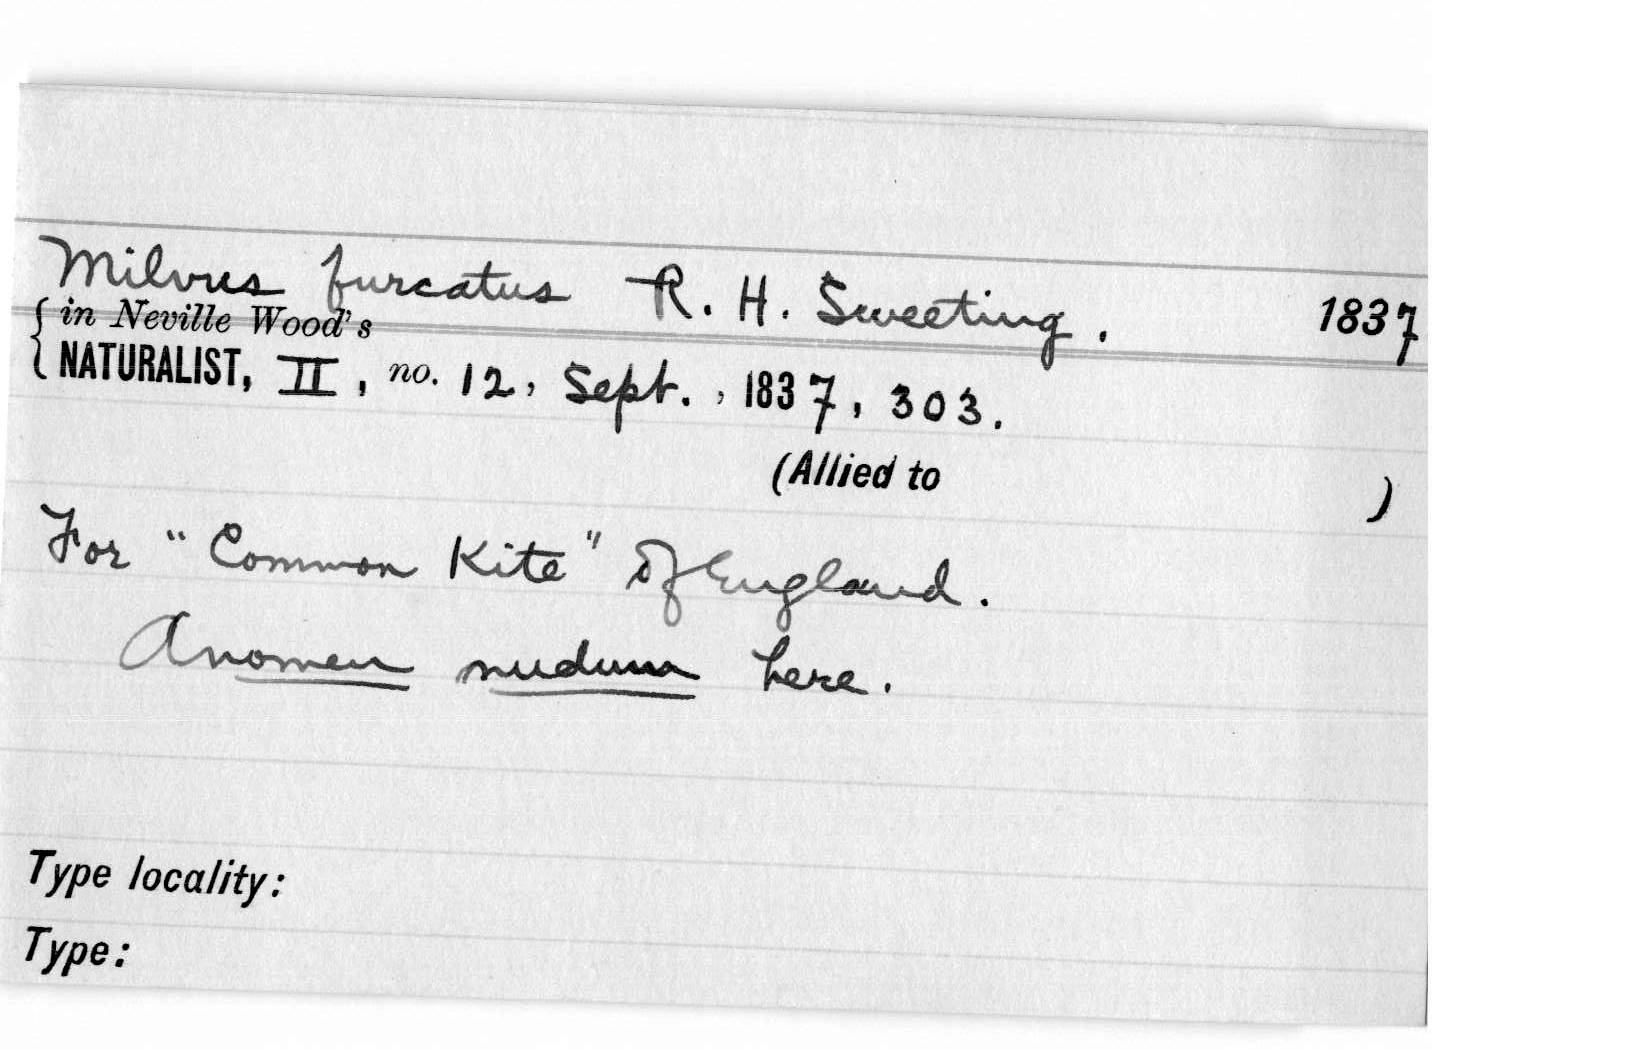 Milvus furcatus R. H. Sweeting. 1837
in Neville Wood's
NATURALIST, II, no. 12, Sept., 1837, 303.
(Allied to )
For "Common Kite" of England.
A nomen nudum here.
Type locality:
Type: